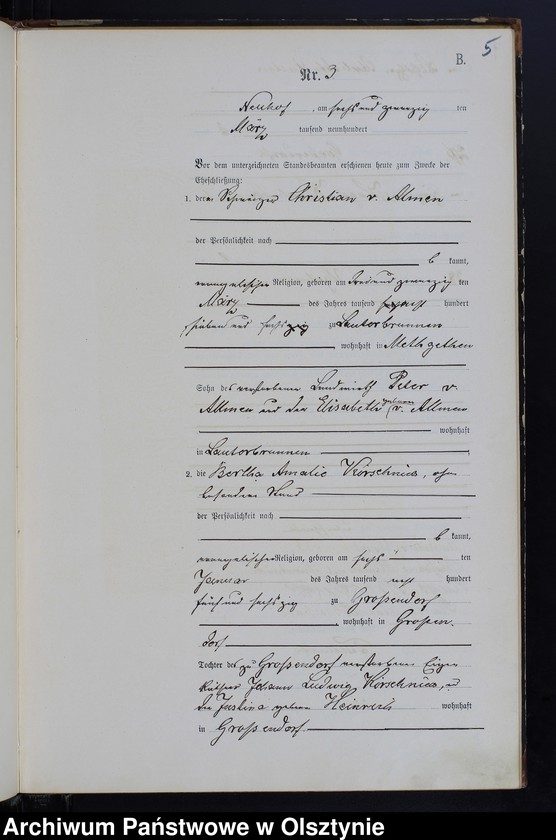 5
B.
Nr. 3
Neuhof, am sechs und zwanzig ten
März tausend neunhundert
Vor dem unterzeichneten Standesbeamten erschienen heute zum Zwecke der
Eheschließung:
1. der Schweizer Christian v. Almen
der Persönlichkeit nach
b kannt,
evangelischer Religion, geboren am drei und zwanzig ten
März des Jahres tausend acht hundert
sieben und sechszig zu Lauterbrunnen
, wohnhaft in Methgethen
Sohn des verstorbenen Landwirth Peter v.
Allmen und der Elisabeth geborene v. Allmen
wohnhaft
in Lauterbrunnen
2. die Bertha Amalie Körschnies, ohne
besonderen Stand
der Persönlichkeit nach
b kannt,
evangelischer Religion, geboren am sechs ten
Januar des Jahres tausend acht hundert
fünf und sechszig zu Großendorf
, wohnhaft in Großen-
dorf
Tochter des zu Großendorf verstorbenen Eigen
käthner Johann Ludwig Körschnies, und
der Justina geborene wohnhaft
in Großendorf
Archiwum Państwowe w Olsztynie